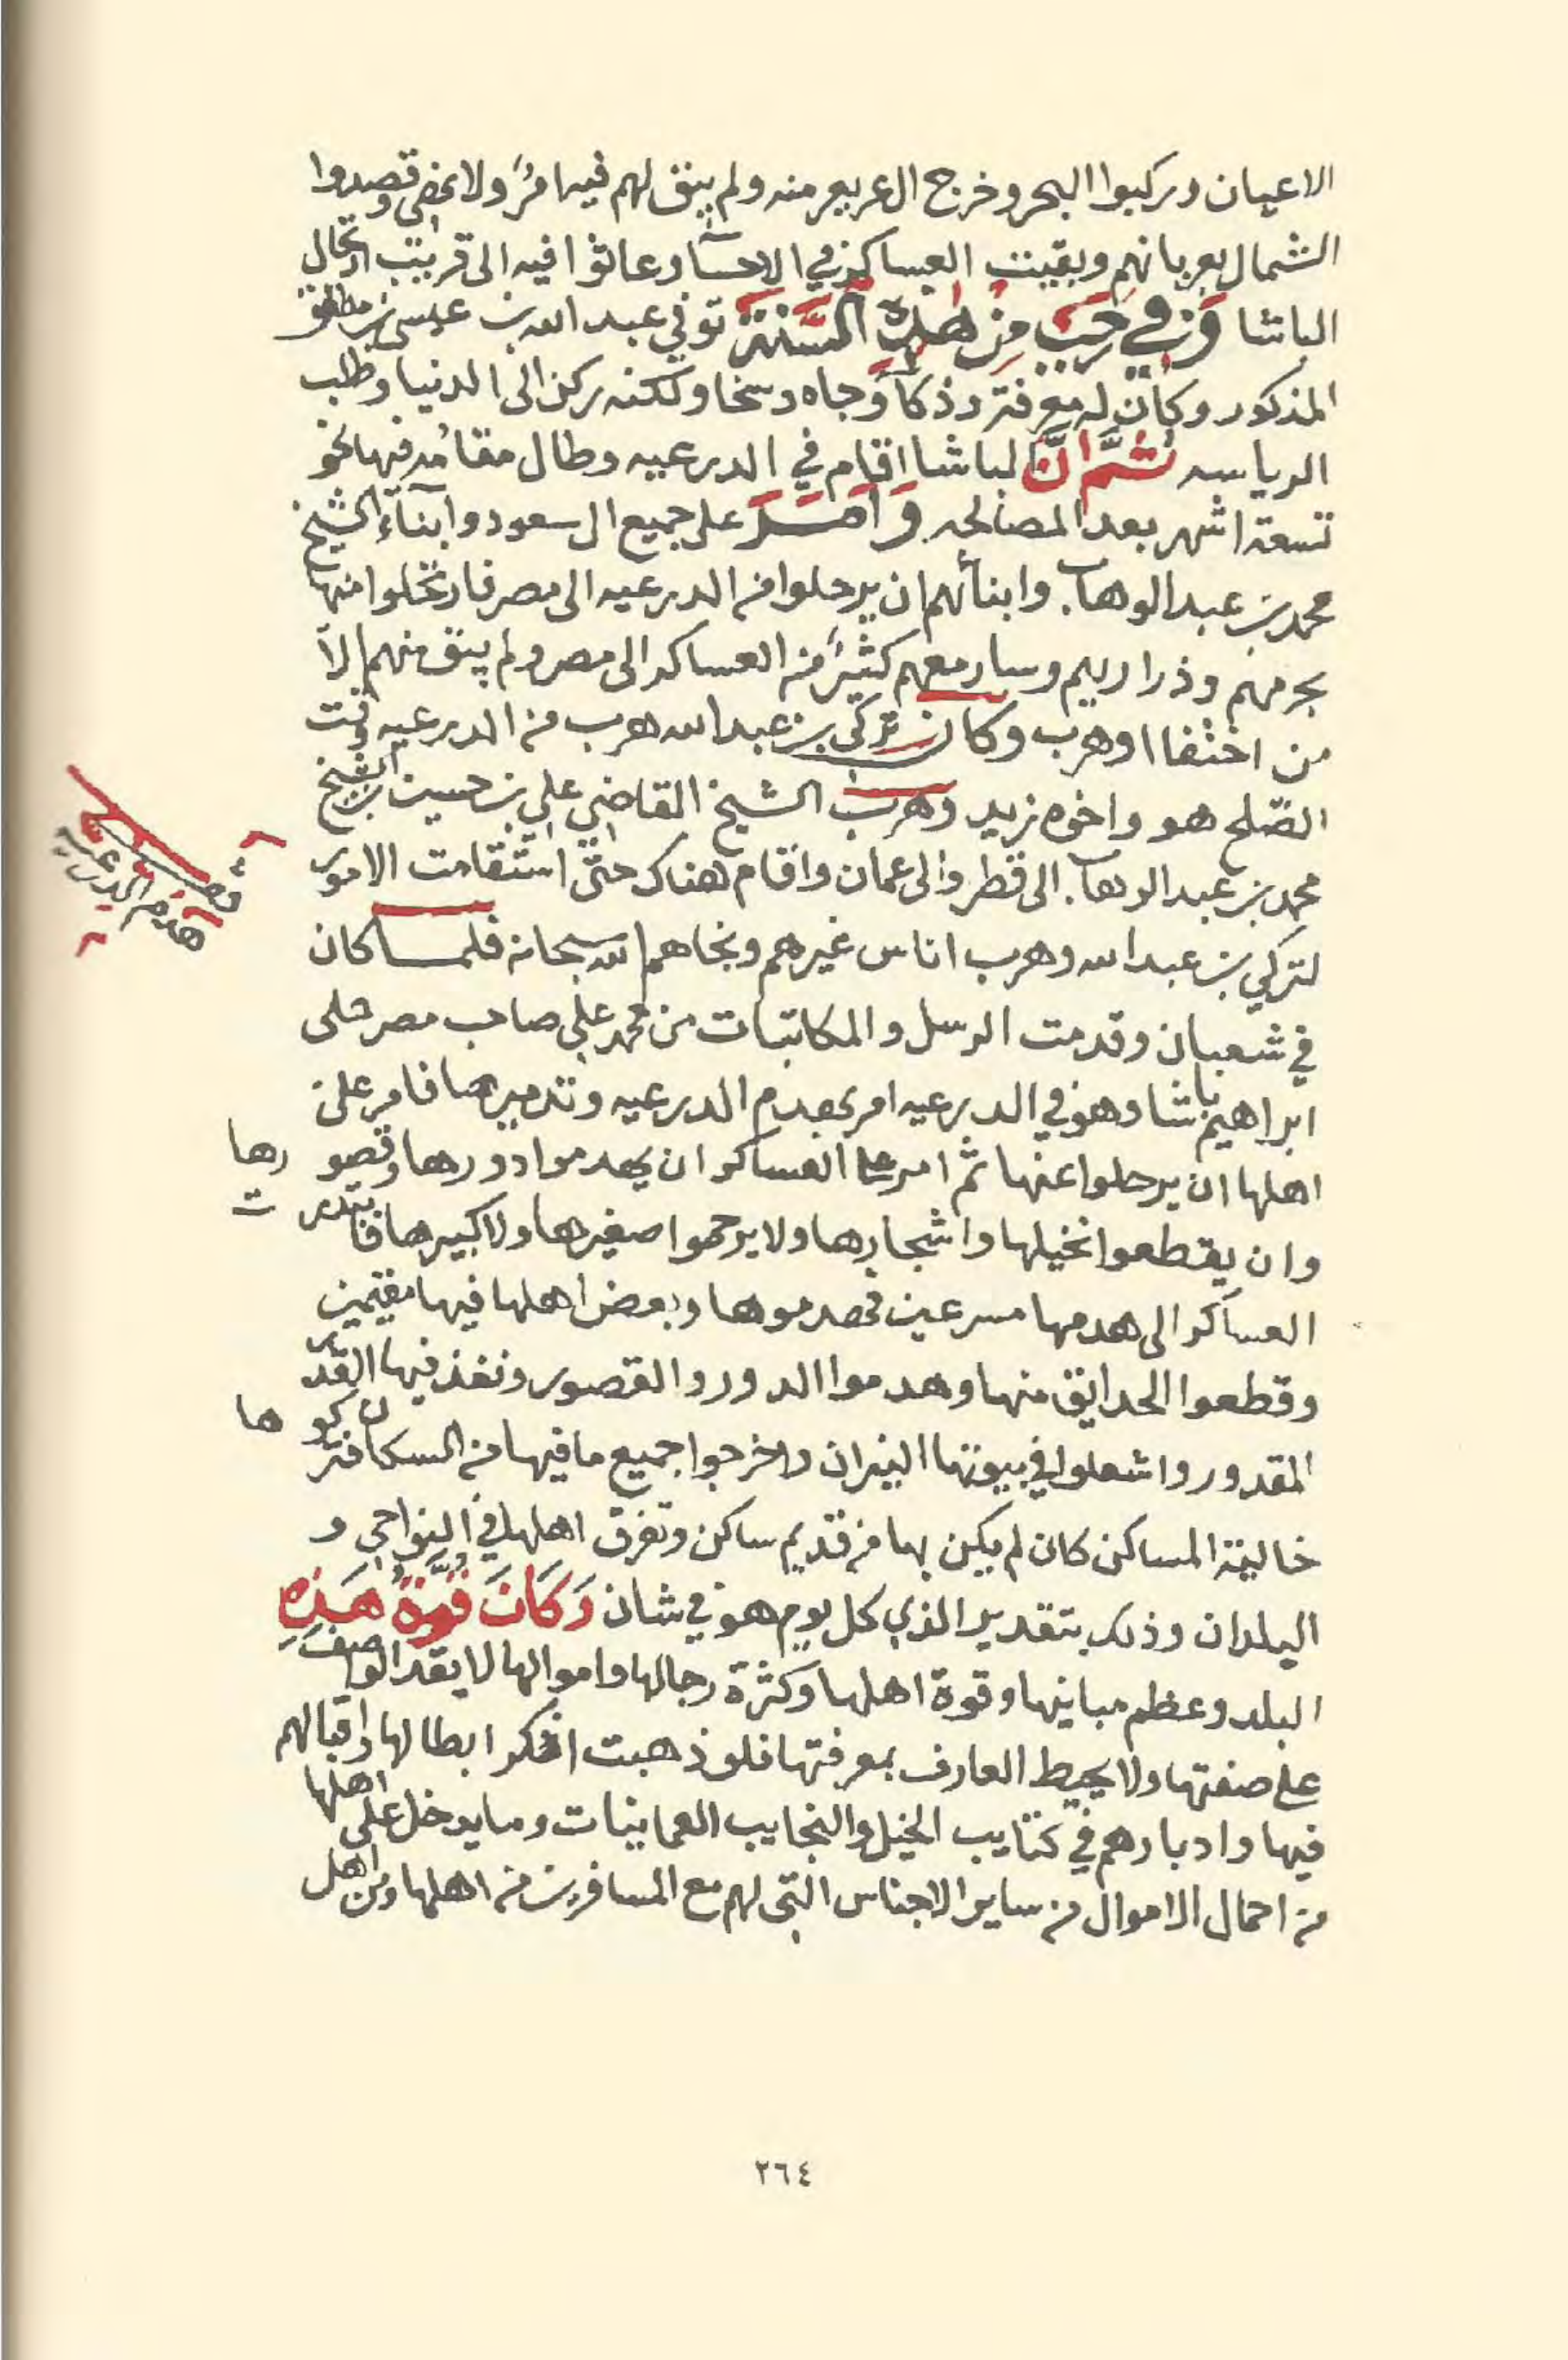 الاعيان وركبوا البحر وخرج ال عريعر منه ولم يبق لهم فيها امر ولا نهي وقصدوا
الشمال بعربانهم وبقيت العساكر في الاحسا وعاثوا فيه الى قريب ارتحال
الباشا وفي رجب من هذه السنة توفي عبد الله بن عيسى بن مطلق
المذكور وكان له معرفة وذكآ وجاه وسخا ولكنه ركن الى الدنيا وطلب
الرياسه ثم ان الباشا اقام في الدرعيه وطال مقامه فيها نحو
تسعة اشهر بعد المصالحه وامر على جميع ال سعود وابنآء الشيخ
محمد بن عبد الوهاب وابنائهم ان يرحلوا من الدرعيه الى مصر فارتحلوا منها
بحرمهم وذراريهم وسار معهم كثير من العساكر الى مصر ولم يبق منهم الا
من اختفا او هرب وكان تركي بن عبد الله هرب من الدرعيه وقت
الصلح هو واخوه زيد وهرب الشيخ القاضي علي بن حسين بن الشيخ
محمد بن عبد الوهاب الى قطر والى عمان واقام هناك حتى استقامت الامور
لتركي بن عبد الله وهرب اناس غيرهم ونجاهم الله سبحانه فلما كان
قصة
هدم الدرعيه
في شعبان وقدمت الرسل والمكاتبات من محمد علي صاحب مصر على
ابراهيم باشا وهو في الدرعيه امر بهدم الدرعيه وتدميرها فامر على
اهلها ان يرحلوا عنها ثم امر على العساكر ان يهدموا دورها وقصورها
وان يقطعوا نخيلها واشجارها ولا يرحموا صغيرها ولا كبيرها فابتدرت
العساكر الى هدمها مسرعين فهدموها وبعض اهلها فيها مقيمين
وقطعوا الحدايق منها وهدموا الدور والقصور ونفذ فيها القدر
المقدور واشعلوا في بيوتها النيران واخرجوا جميع ما فيها من السكان فتركوها
خالية المساكن كان لم يكن بها من قديم ساكن وتفرق اهلها في النواحي و
البلدان وذلك بتقدير الذي كل يوم هو في شان وكان قوة هذه
البلد وعظم مبانيها وقوة اهلها وكثرة رجالها واموالها لا يقدر الواصف
على صفتها ولا يحيط العارف بمعرفتها فلو ذهبت اذكر ابطالها واقبالهم
فيها وادبارهم في كتايب الخيل والنجايب العمانيات وما يدخل على اهلها
من احمال الاموال من ساير الاجناس التي لهم مع المسافرين من اهلها ومن اهل
٢٦٤